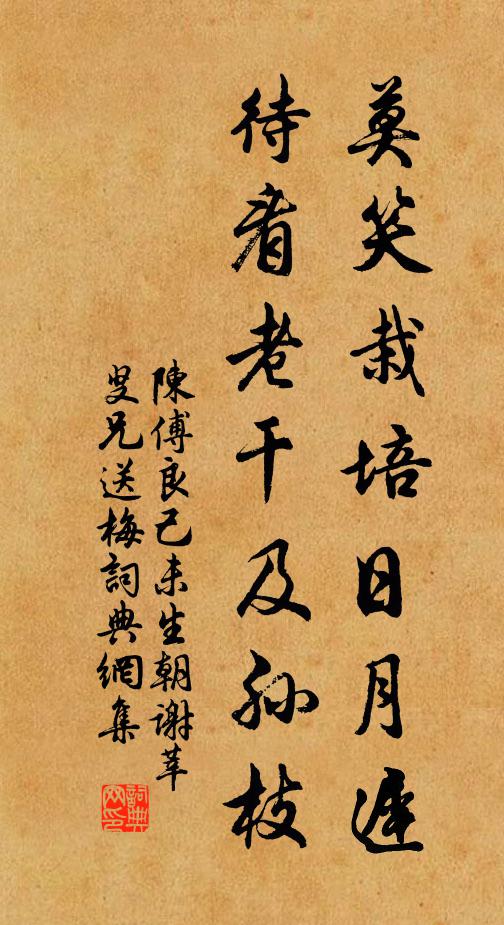 莫笑栽培日月遲
待看老干及孙枝
陳傅良己未生朝謝莘
叟兄送梅詞典網集
詞典
网印